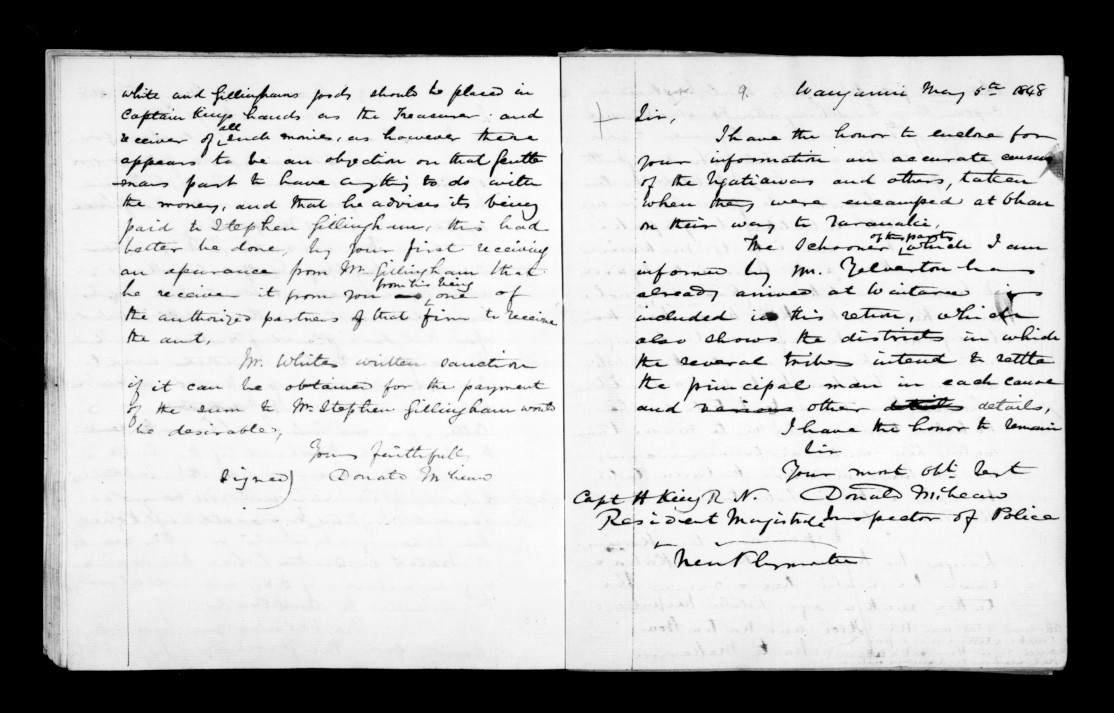 white and Gillinghams goods should be placed in
Captain Kings hands as the Treasurer and
receiver of all such monies, as however there
appears to be an objection on that gentle
mans part to have anything to do with
the money, and that he advises its being
paid to Stephen Gillingham, this had
better be done, by your first receiving
an assurance from Mr Gillingham that
he receives it from you from his being one of
the authorized partners of that firm to receive
the amt,
Mr. Whites written sanction
if it can be obtained for the payment
of the sum to Mr Stephen Gillingham would
be desirable,
Yours faithfully
Signed) Donald McLean
9. Wanganui May 5th 1848
Sir,
I have the honor to enclose for
your information an accurate census
of the Ngatiawas and others, taken
when they were encamped at
on their way to Taranaki,
The Schooner of the party which I am
informed by Mr. Yelverton has
already arrived at Waitara is
included in this return, which
also shows the districts in which
the several tribes intend to settle
the principal man in each cause
and various other details details,
I have the honor to remain
Sir
Your most obt. Sert
Donald McLean
Capt H King R. N.
Resident Magistrate Inspector of Police
New Plymouth